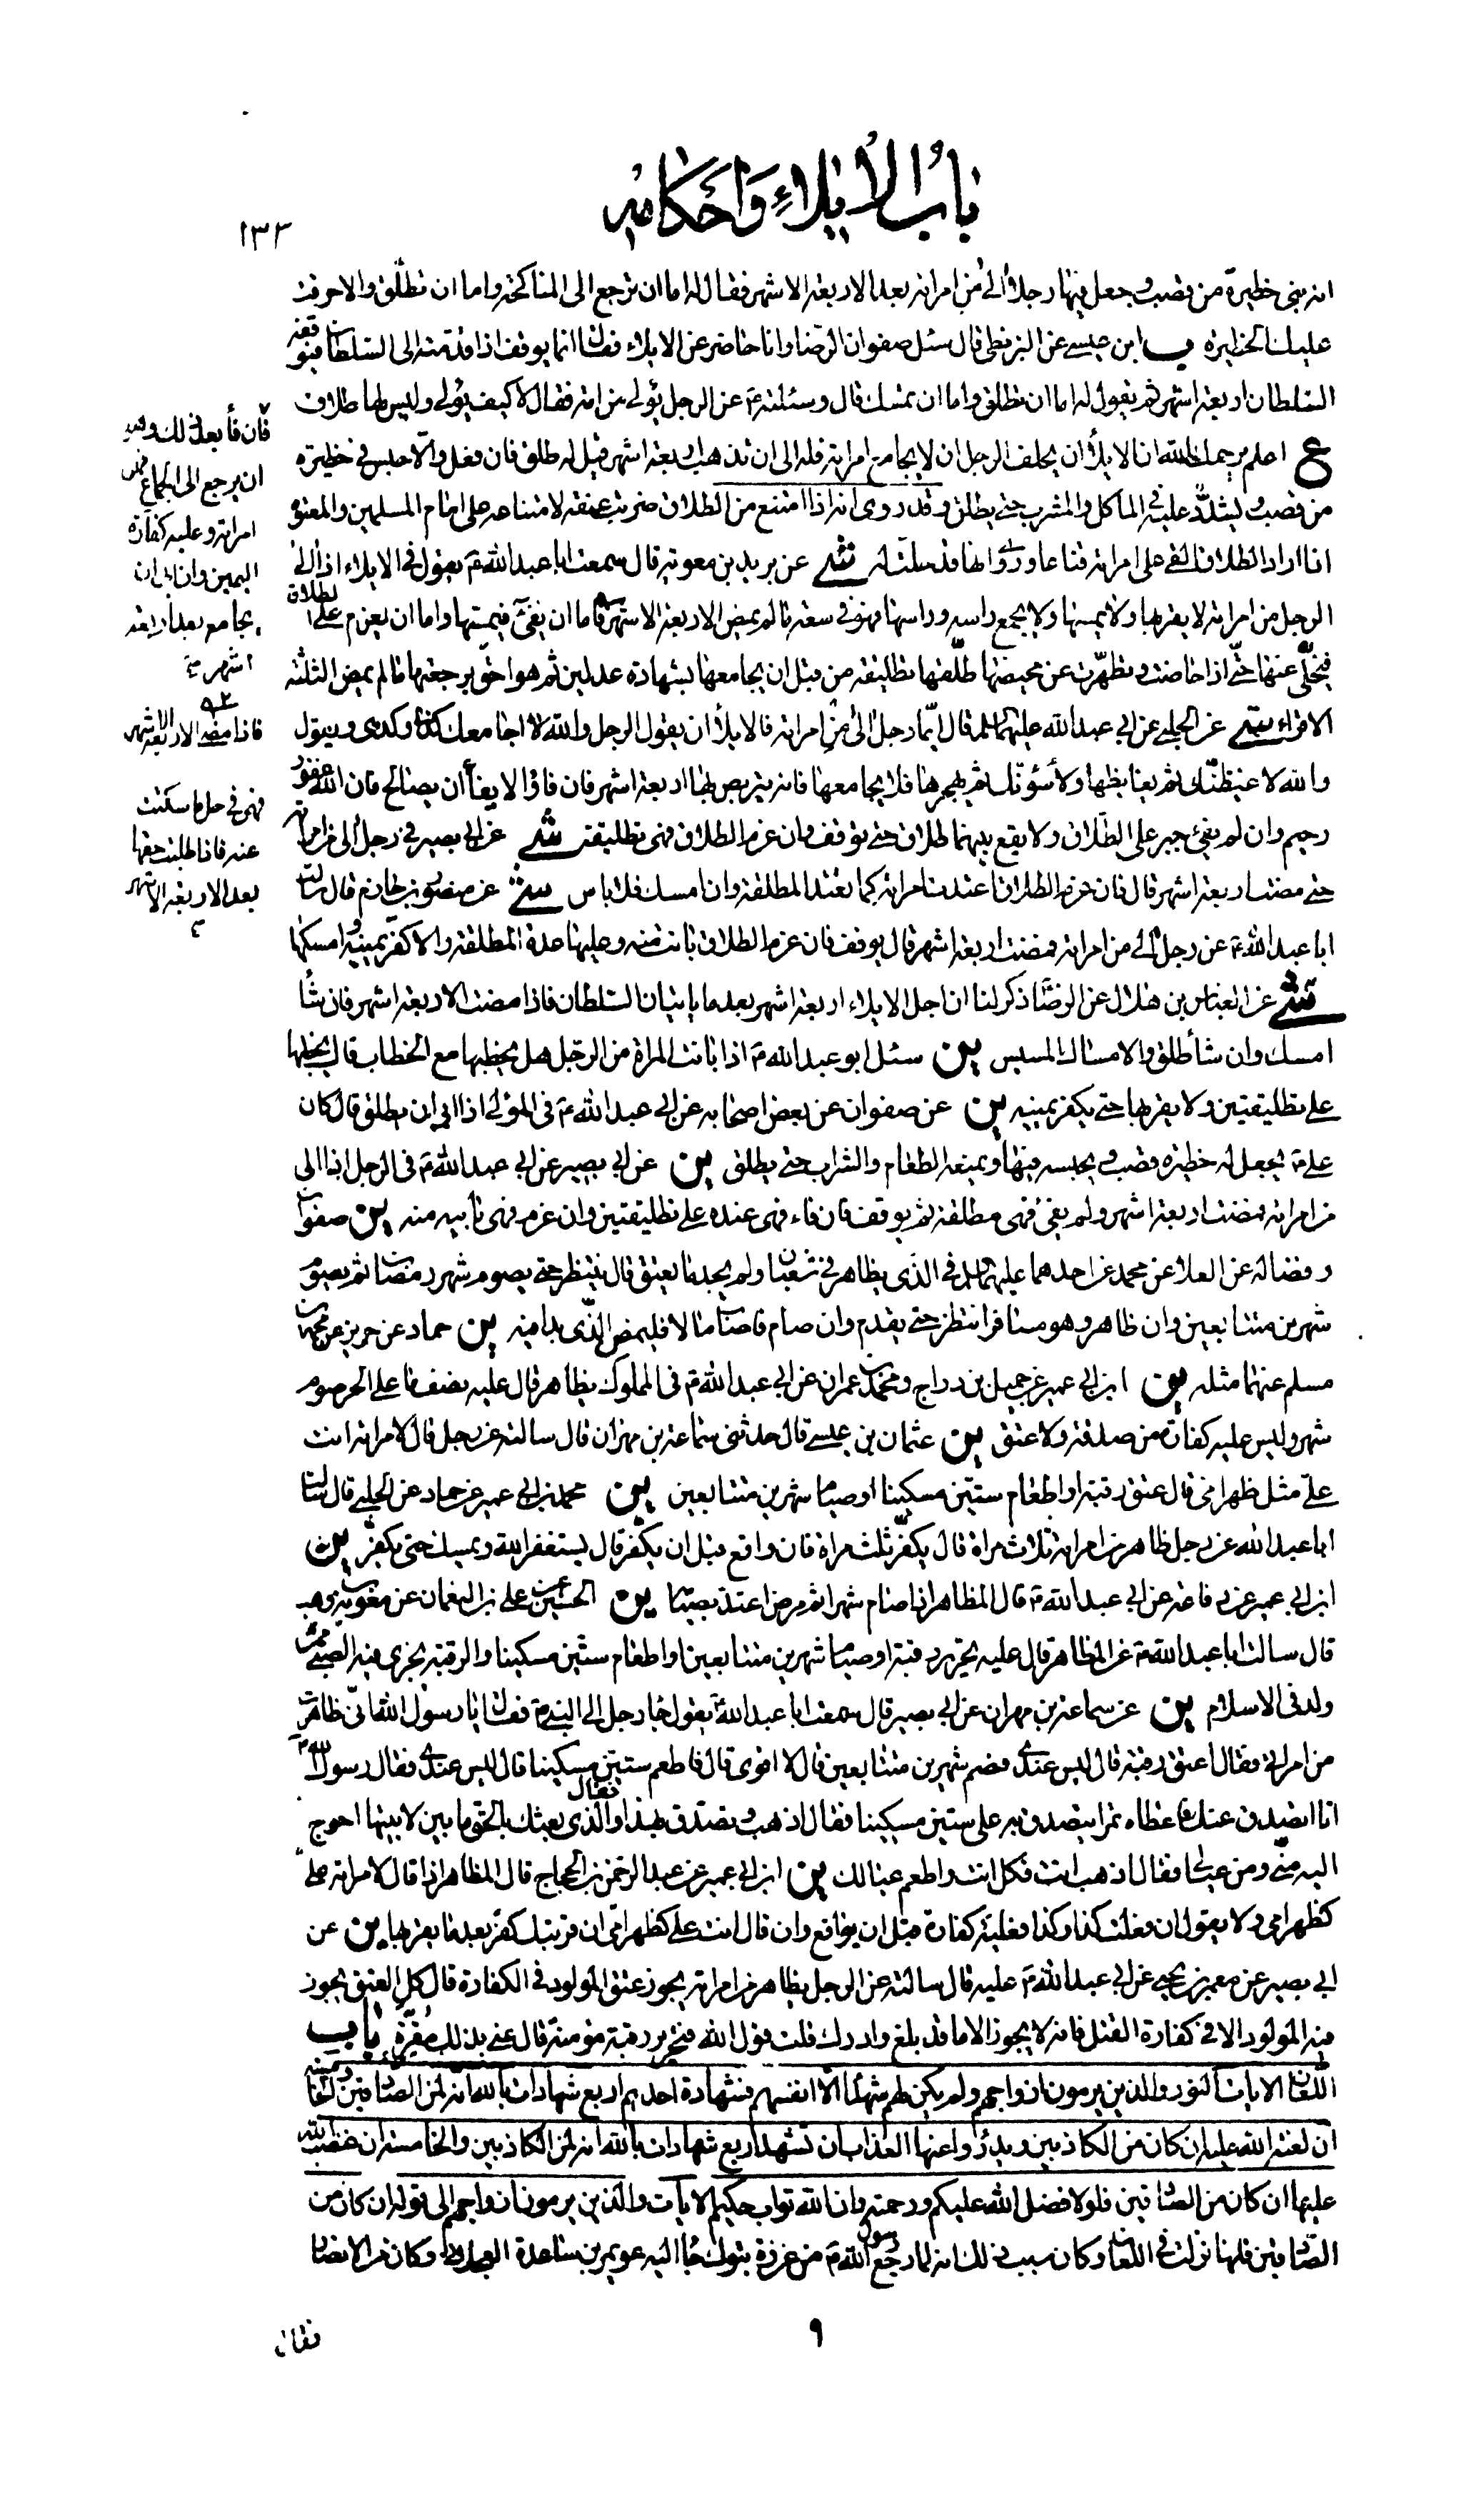 باب الايلاء واحكامه
١٣٣
انه بنى حظيرة من قصب وجعل فيها رجلا آلى من امراته بعد الاربعة الاشهر فقال له اما ان ترجع الى المناكحة واما ان تطلق والا احرقت
عليك الحظيرة ب ابن عيسى عن البزنطي قال سئل صفوان الرضا وانا حاضر عن الايلاء فقال انما يوقف اذا قدمته الى السلطان فيوقفه
السلطان اربعة اشهر ثم يقول له اما ان تطلق واما ان تمسك قال وسئلته ع عن الرجل يؤلي من امته فقال لا كيف يؤلي وليس لها طلاق
ع اعلم يرحمك الله ان الايلاء ان يحلف الرجل ان لا يجامع امراته فله الى ان تذهب اربعة اشهر قيل له طلق فان فعل والا حبس في حظيرة
من قصب وليشدد عليه في المأكل والمشرب حتى يطلق وقد روى انه اذا امتنع من الطلاق ضربت عنقه لامتناعه على امام المسلمين والمعتوه
اذا اراد الطلاق القى على امراته قناعا وروى انها قد سلت له شي عن بريد بن معوية قال سمعت ابا عبد الله ع يقول في الايلاء اذا آلى
الرجل من امراته لا يقربها ولا يمسها ولا يجمع راسه وراسها فهو في سعة ما لم يمض الاربعة الاشهر فاما ان يفئ فيمسها واما ان يعزم على الطلاق
فيخلى عنها حتى اذا حاضت وتطهرت عن محيضها طلقها تطليقة من قبل ان يجامعها بشهادة عدلين ثم هو احق برجعتها ما لم يمض الثلثة
الاقراء شي عن الحلبي عن ابي عبد الله عليه السلام قال ايما رجل آلى من امراته فالايلاء ان يقول الرجل والله لا اجامعك كذا وكذا ويقول
والله لاغيظنك ثم يغايظها ولأسوئنك ثم يهجرها فلا يجامعها فانه يتربص بها اربعة اشهر فان فاؤا الايفاء ان يصالح فان الله غفور
رحيم وان لم يفئ جبر على الطلاق ولا يقع بينهما طلاق حتى توقف وان عزم الطلاق فهي تطليقة شي عن ابي بصير في رجل آلى من امراته
حتى مضت اربعة اشهر قال فان عزم الطلاق اعتدت امراته كما تعتد المطلقة وان امسك فلا باس شي عن منصور بن حازم قال سالت
ابا عبد الله ع عن رجل آلى من امراته فمضت اربعة اشهر قال يوقف فان عزم الطلاق بانت منه وعليها عدة المطلقة والا كفر يمينه وامسكها
شي عن العباس بن هلال عن الرضا ذكر لنا ان اجل الايلاء اربعة اشهر بعد ما ياتيان السلطان فاذا مضت الاربعة اشهر فان شاء
امسك وان شاء طلق والامساك المسيس ين سئل ابو عبد الله ع اذا بانت المراة من الرجل هل يخطبها مع الخطاب قال يخطبها
على تطليقتين ولا يقربها حتى يكفر يمينه ين عن صفوان عن بعض اصحابه عن ابي عبد الله ع في المؤلي اذا ابى ان يطلق قال كان
علي ع يجعل له حظيرة قصب ويحبسه فيها ويمنعه الطعام والشراب حتى يطلق ين عن ابي بصير عن ابي عبد الله ع في الرجل اذا الى
من امراته فمضت اربعة اشهر ولم يفئ فهي مطلقة ثم يوقف فان فاء فهي عنده على تطليقتين وان عزم فهي بائنة منه ين صفوان
وفضالة عن العلا عن محمد عن احدهما عليهما السلام في الذي يظاهر في شعبان ولم يجد ما يعتق قال ينتظر حتى يصوم شهر رمضان ثم يصوم
شهرين متتابعين وان ظاهر وهو مسافر انتظر حتى يقدم وان صام فاصاب مالا فليمض الذي بدا فيه ين حماد عن حريز عن محمد بن
مسلم عنهما مثله ين ابن ابي عمير عن جميل بن دراج ومحمد بن عمران عن ابي عبد الله ع في المملوك يظاهر قال عليه نصف ما على الحر صوم
شهر وليس عليه كفارة من صدقة ولا عتق ين عثمان بن عيسى قال حدثني سماعة بن مهران قال سالته عن رجل قال لامراته انت
علي مثل ظهر امي قال عتق رقبة او اطعام ستين مسكينا او صيام شهرين متتابعين ين محمد بن ابي عمير عن حماد عن الحلبي قال سالت
ابا عبد الله عن رجل ظاهر من امراته ثلاث مراة قال يكفر ثلث مراة فان واقع قبل ان يكفر قال يستغفر الله ويمسك حتى يكفر ين
ابن ابي عمير عن رفاعة عن ابي عبد الله ع قال المظاهر اذا صام شهرا ثم مرض اعتد بصيامه ين الحسين عن علي بن النعمان عن معوية بن وهب
قال سالت ابا عبد الله ع عن المظاهر قال عليه تحرير رقبة او صيام شهرين متتابعين او اطعام ستين مسكينا والرقبة يجزى فيه الصبي ممن
ولد في الاسلام ين عن سماعة بن مهران عن ابي بصير قال سمعت ابا عبد الله ع يقول جاء رجل الى النبي ص فقال يا رسول الله اني ظاهرت
من امراتي فقال اعتق رقبة قال ليس عندي قال فصم شهرين متتابعين قال لا اقوى قال فاطعم ستين مسكينا قال ليس عندي فقال رسول الله ص
انا اتصدق عنك فاعطاه تمرا يتصدق به على ستين مسكينا فقال اذهب وتصدق بهذا فقال والذي بعثك بالحق ما بين لابتيها احوج
اليه مني ومن عيالي فقال اذهب انت فكل انت واطعم عيالك ين ابن ابي عمير عن عبد الرحمن بن الحجاج قال المظاهر اذا قال لامراته علي
كظهر امي ولا يقول ان فعلت كذا وكذا فعليه كفارة قبل ان يواقع وان قال انت علي كظهر امي ان قربتك كفر بعد ما يقربها ين عن
ابي بصير عن معمر بن يحيى عن ابي عبد الله ع عليه قال سالته عن الرجل يظاهر من امراته يجوز عتق المولود في الكفارة قال كل العتق يجوز
فيه المولود الا في كفارة القتل فانه لا يجوز الا ما قد بلغ وادرك قلت قول الله فتحرير رقبة مؤمنة قال عنى بذلك مقرة باب
اللعان الايات النور والذين يرمون ازواجهم ولم يكن لهم شهداء الا انفسهم فشهادة احدهم اربع شهادات بالله انه لمن الصادقين والخامسة
ان لعنة الله عليه ان كان من الكاذبين ويدرؤا عنها العذاب ان تشهد اربع شهادات بالله انه لمن الكاذبين والخامسة ان غضب الله
عليها ان كان من الصادقين فلولا فضل الله عليكم ورحمته وان الله تواب حكيم الايات والذين يرمون ازواجهم الى قوله ان كان من
الصادقين فانها نزلت في اللعان وكان سبب ذلك انه لما رجع رسول الله ص من غزوة تبوك جاء اليه عويمر بن ساعدة العجلاني وكان من الانصار
فان فاء بعد ذلك وهو
ان يرجع الى الجماع فهي
امراته وعليه كفارة
اليمين وان ابى ان
يجامع بعد اربعة
اشهر
فاذا مضت الاربعة الاشهر
فهي في حل ما سكتت
عنه فاذا طلبت حقها
بعد الاربعة الاشهر
٩
فقال